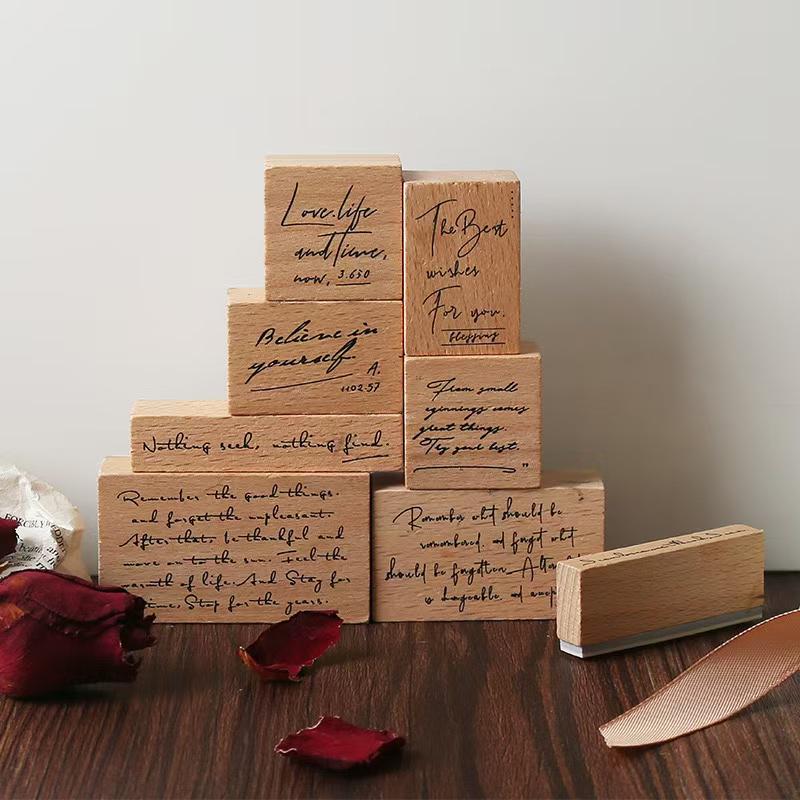 Love.life
and Time,
now, 3.650
The Best
wishes
For you.
blessing
Believe in
yourself.
A.
1102.57
From small
eginnings comes
great things.
Try your best.
"
Nothing seek, nothing find.
Remember the good things.
and forget the unpleasant.
After that, be thankful and
move on to the sun. Feel the
warmth of life. And Stay for
time, Stop for the years.
Remember what should be
remembered, and forget what
should be forgotten. Alter
is changeable, and accep
FORCIBLY